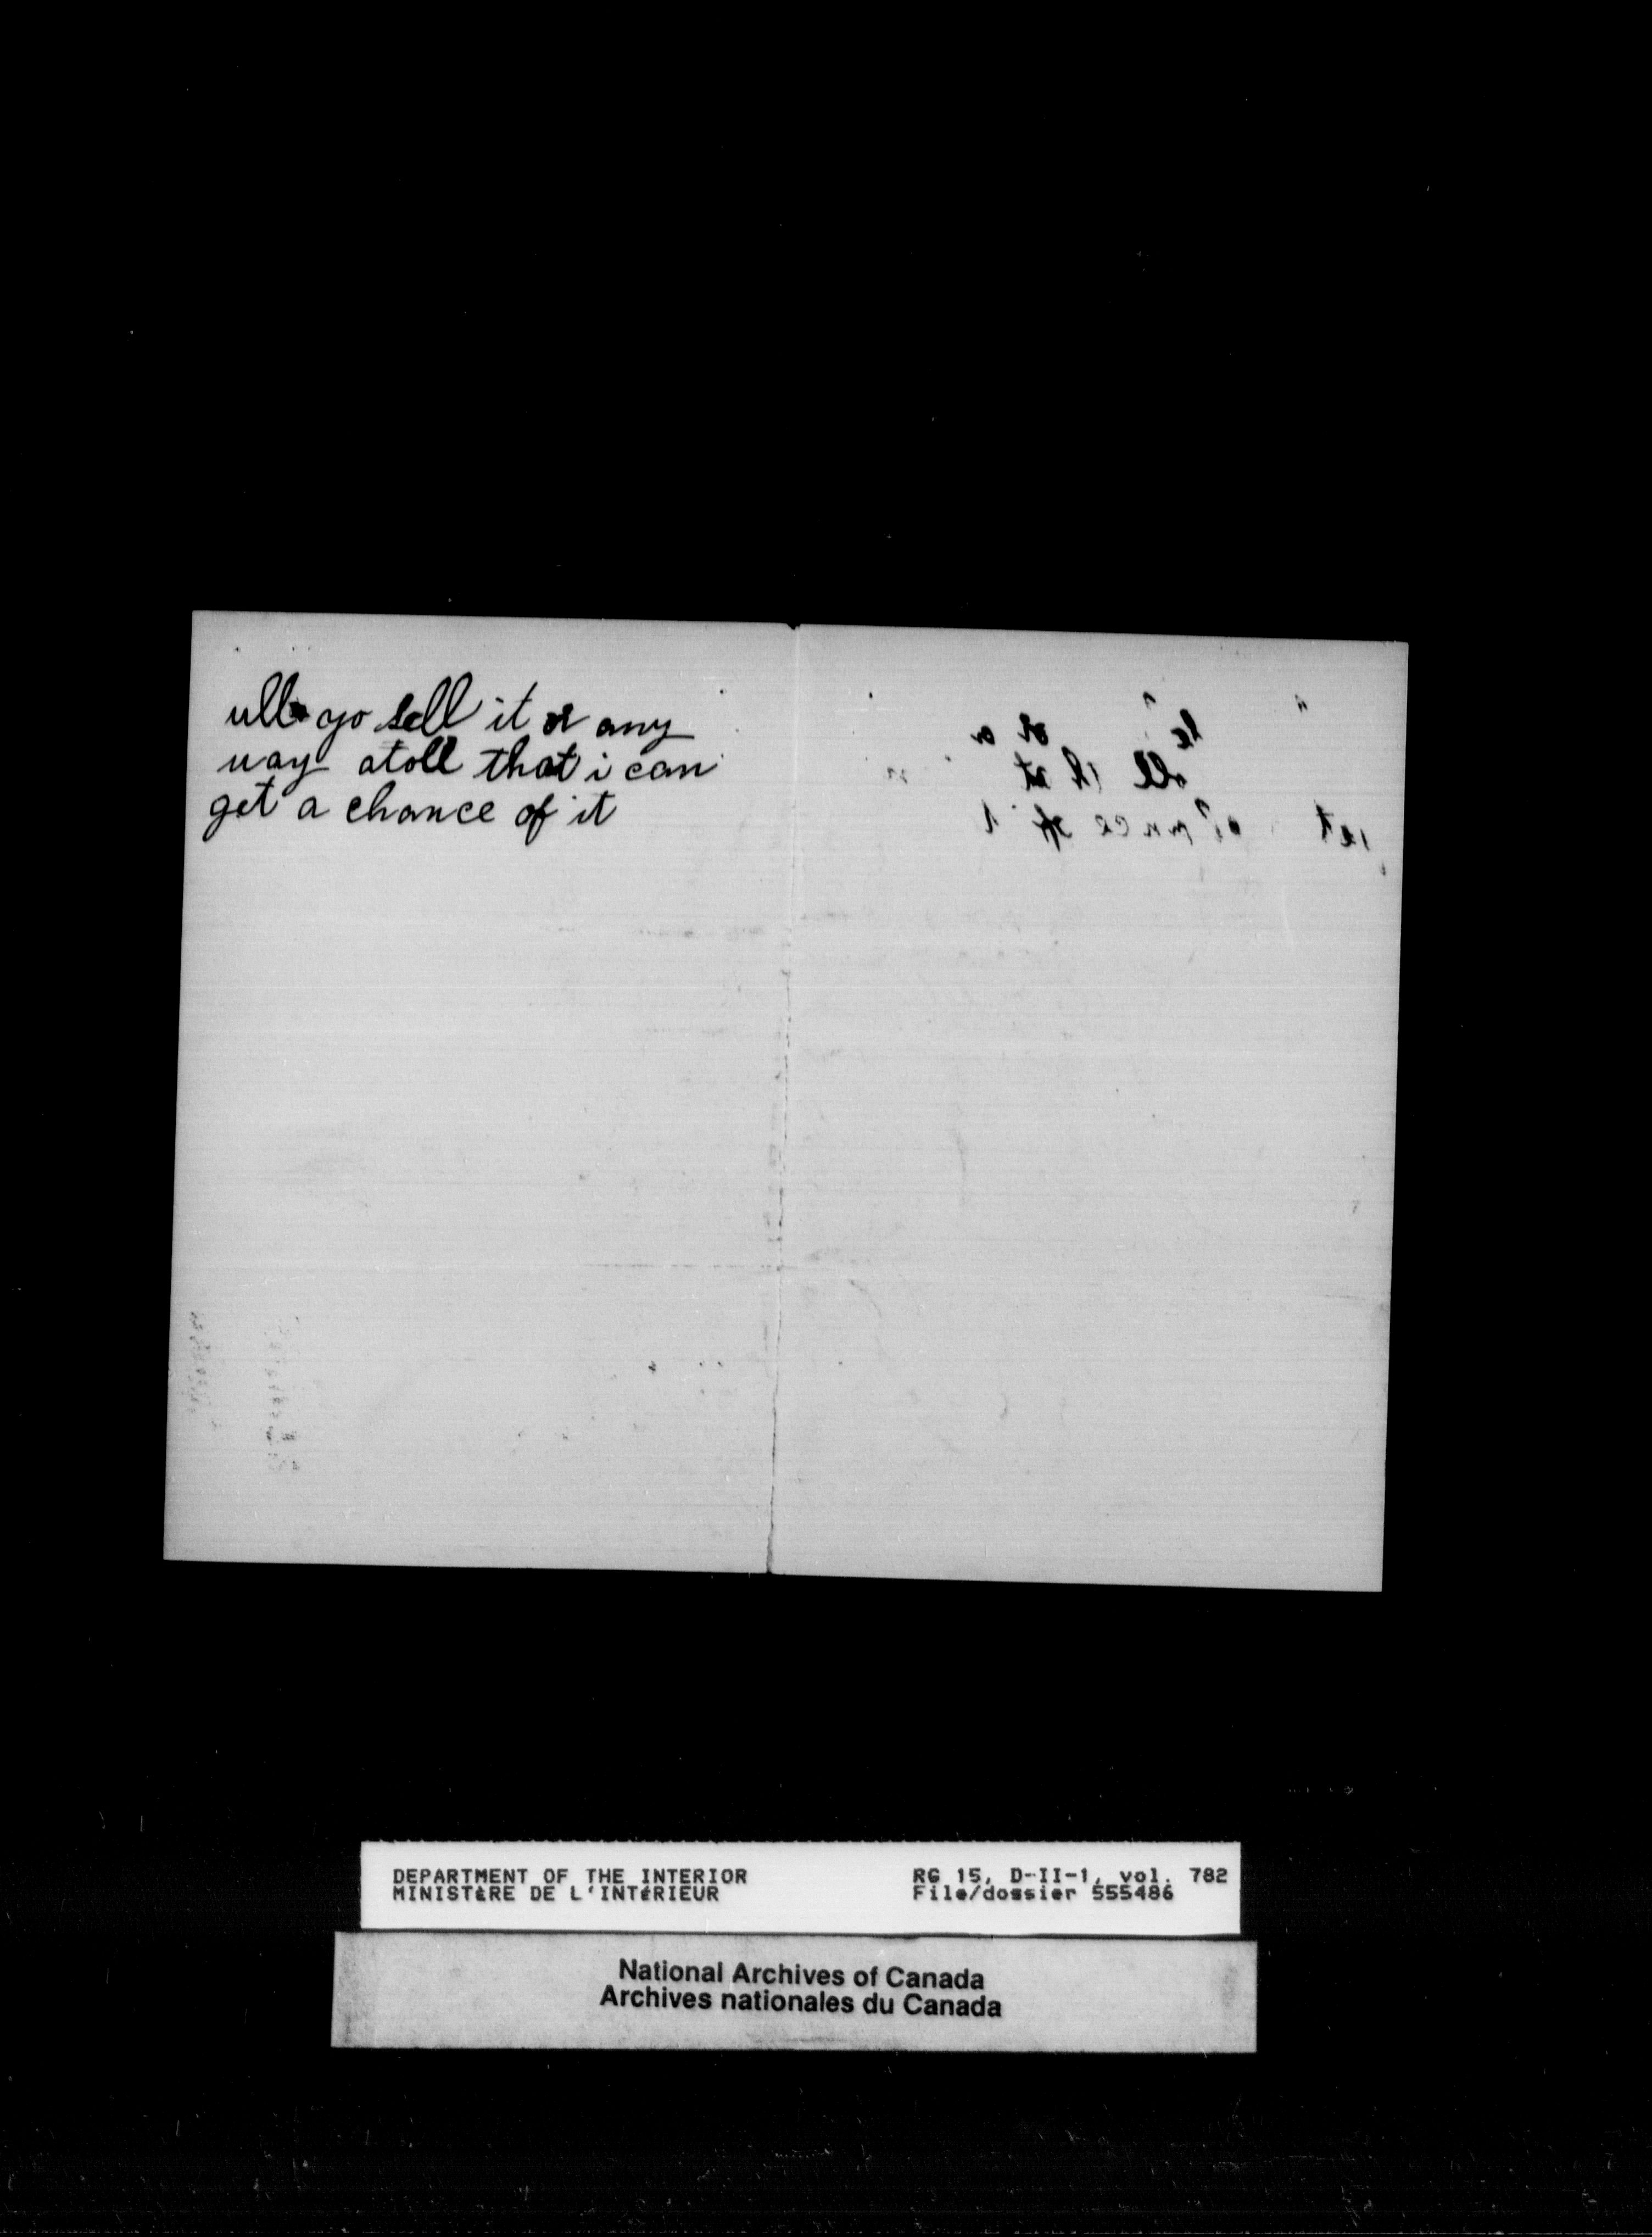 ull go sell it or any
way atoll that i can
get a chance of it
DEPARTMENT OF THE INTERIOR
MINISTÈRE DE L'INTÉRIEUR
RG 15, D-II-1, vol. 782
File/dossier 555486
National Archives of Canada
Archives nationales du Canada